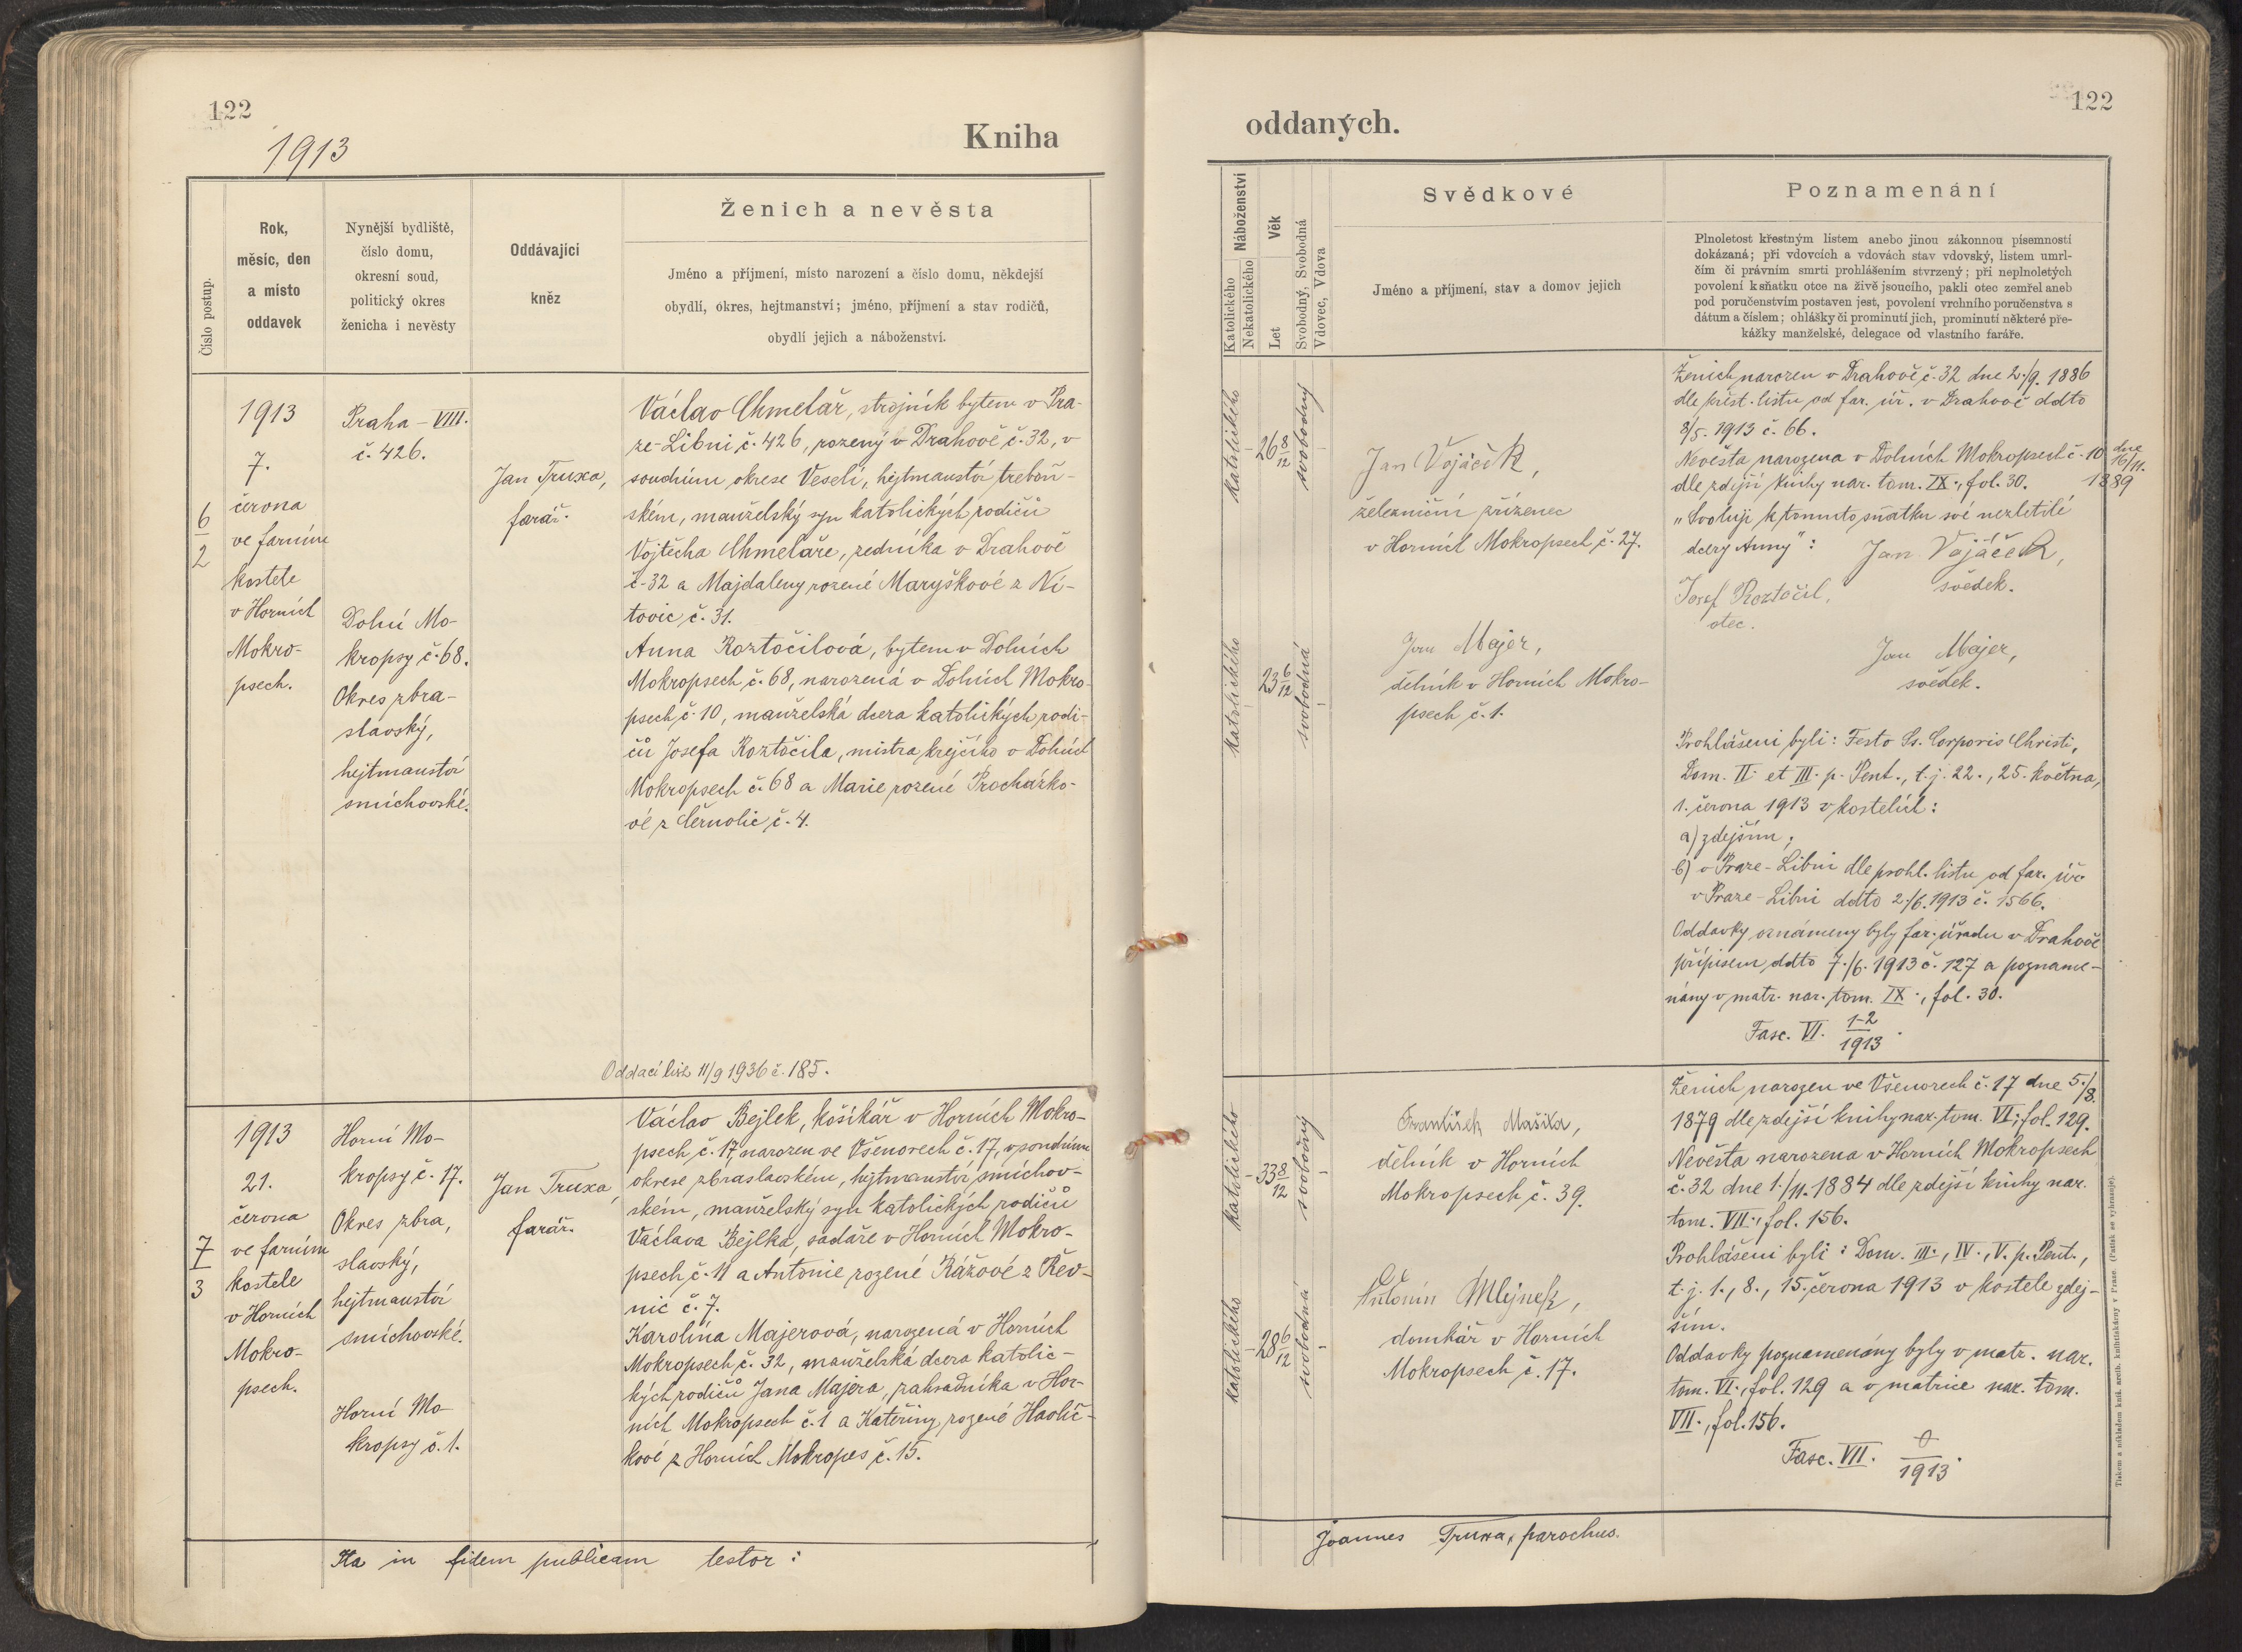 122
1913
Kniha
Číslo postup.
Rok,
měsíc, den
a místo
oddavek
Nynější bydliště,
číslo domu,
okresní soud,
politický okres
ženicha i nevěsty
Oddávající
kněz
Ženich a nevěsta
Jméno a příjmení, místo narození a číslo domu, někdejší
obydlí, okres, hejtmanství; jméno, příjmení a stav rodičů,
obydlí jejich a náboženství.
6
2
1913
7.
června
ve farním
kostele
v Horních
Mokro-
psech.
Praha – VIII.
č. 426.
Dolní Mo-
kropsy č. 68.
Okres zbra-
slavský,
hejtmanství
smíchovské.
Jan Truxa,
farář.
Václav Chmelař, strojník bytem v Pra-
ze-Libni č. 426, rozený v Drahově č. 32, v
soudním okrese Veselí, hejtmanství třeboň-
ském, manželský syn katolických rodičů
Vojtěcha Chmelaře, zedníka v Drahově
č. 32 a Majdaleny rozené Maryškové z Ní-
tovic č. 31.
Anna Roztočilová, bytem v Dolních
Mokropsech č. 68, narozená v Dolních Mokro-
psech č. 10, manželská dcera katolických rodi-
čů Josefa Roztočila, mistra krejčího v Dolních
Mokropsech č. 68 a Marie rozené Procházko-
vé z Černolic č. 4.
Oddací list 11/9 1936 č. 185.
7
3
1913
21.
června
ve farním
kostele
v Horních
Mokro-
psech.
Horní Mo-
kropsy č. 17.
Okres zbra,
slavský,
hejtmanství
smíchovské.
Horní Mo-
kropsy č. 1.
Jan Truxa,
farář.
Václav Bejlek, košíkář v Horních Mokro-
psech č. 17, narozen ve Všenorech č. 17, v soudním
okrese zbraslavském, hejtmanství smíchov-
ském, manželský syn katolických rodičů
Václava Bejlka, sadaře v Horních Mokro-
psech č. 11 a Antonie rozené Rážové z Řev-
nic č. 7.
Karolina Majerová, narozená v Horních
Mokropsech č. 32, manželská dcera katolic-
kých rodičů Jana Majera, zahradníka v Hor-
ních Mokropsech č. 1 a Kateřiny rozené Havlíč-
kové z Horních Mokropes č. 15.
Ita in fidem publicam testor:
122
oddaných.
Náboženství
Katolického
Nekatolického
Věk
Let
Svobodný, Svobodná
Vdovec, Vdova
Svědkové
Jméno a příjmení, stav a domov jejich
Poznamenání
Plnoletost křestným listem anebo jinou zákonnou písemností
dokázaná; při vdovcích a vdovách stav vdovský, listem umrl-
čím či právním smrti prohlášením stvrzený; při neplnoletých
povolení k sňatku otce na živě jsoucího, pakli otec zemřel aneb
pod poručenstvím postaven jest, povolení vrchního poručenstva s
dátum a číslem; ohlášky či prominutí jich, prominutí některé pře-
kážky manželské, delegace od vlastního faráře.
katolického
26 8/12
svobodný
Jan Vojáček,
železniční zřízenec
v Horních Mokropsech č. 27.
katolického
23 6/12
svobodná
Jan Majer,
dělník v Horních Mokro-
psech č. 1.
Ženich narozen v Drahově č. 32 dne 2./9. 1886
dle křest. listu od far. úř. v Drahově ddto
8/5. 1913 č. 66.
Nevěsta narozena v Dolních Mokropsech č. 10 dne
16/11.
dle zdejší knihy nar. tom. IX., fol. 30. 1889
„Svoluji k tomuto sňatku své nezletilé
dcery Anny": Jan Vojáček,
svědek.
Josef Roztočil,
otec.
Jan Majer,
svědek.
Prohlášeni byli: Festo Ss. Corporis Christi,
Dom. II. et III. p. Pent., t. j. 22., 25. května,
1. června 1913 v kostelích:
a) zdejším;
b) v Praze-Libni dle prohl. listu od far. úř.
v Praze-Libni ddto 2./6. 1913 č. 1566.
Oddavky oznámeny byly far. úřadu v Drahově
přípisem ddto 7./6. 1913 č. 127 a pozname-
nány v matr. nar. tom. IX., fol. 30.
Fasc. VI. 1-2/1913.
katolického
33 8/12
svobodný
František Mašika,
dělník v Horních
Mokropsech č. 39.
katolického
28 6/12
svobodná
Antonín Mlejnek,
domkář v Horních
Mokropsech č. 17.
Ženich narozen ve Všenorech č. 17 dne 5./8.
1879 dle zdejší knihy nar. tom. VI., fol. 129.
Nevěsta narozena v Horních Mokropsech
č. 32 dne 1./11. 1884 dle zdejší knihy nar.
tom. VII., fol. 156.
Prohlášeni byli: Dom. III., IV., V. p. Pent.,
t. j. 1., 8., 15. června 1913 v kostele zdej-
ším.
Oddavky poznamenány byly v matr. nar.
tom. VI., fol. 129 a v matrice nar. tom.
VII., fol. 156.
Fasc. VII. 0/1913.
Joannes Truxa, parochus.
Tiskem a nákladem kníž. arcib. knihtiskárny v Praze. (Patisk se vyhrazuje).